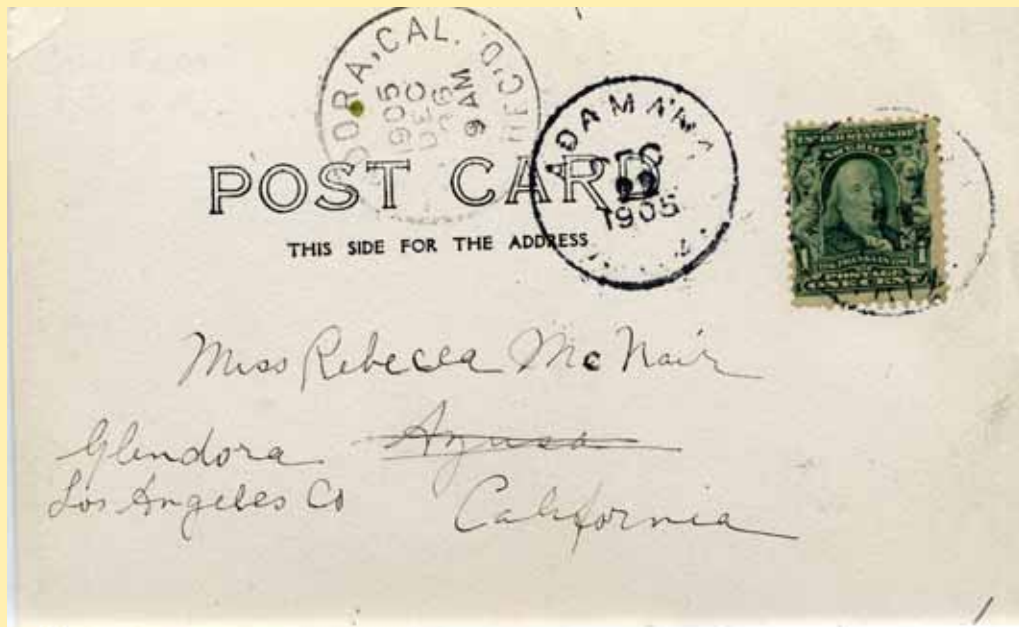 DORA, CAL.
REC'D.
1905
DEC
9 AM
ADAMANA
DEC
22
1905
POST CARD
THIS SIDE FOR THE ADDRESS
POSTAGE
ONE CENT
Miss Rebecca McNair
Glendora Azusa
Los Angeles Co California